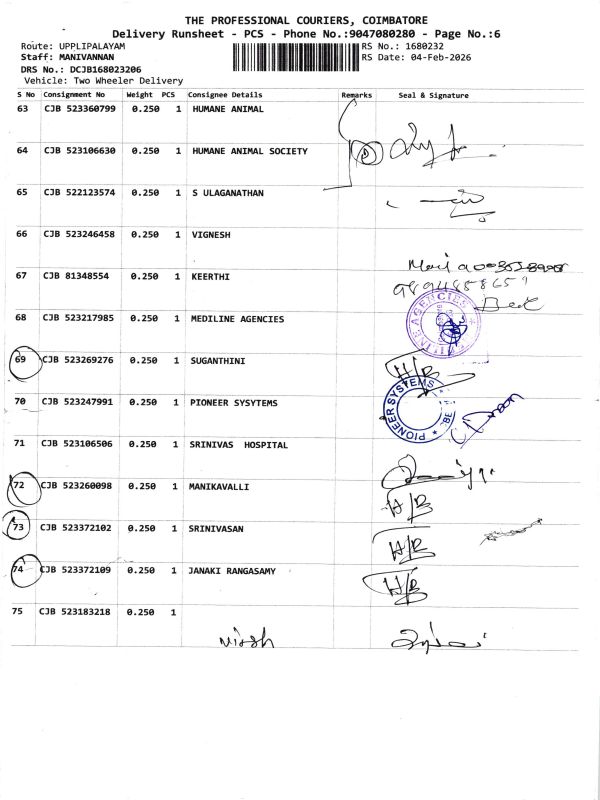 THE PROFESSIONAL COURIERS, COIMBATORE
Delivery Runsheet - PCS - Phone No.:9047080280 - Page No.:6
Route: UPPLIPALAYAM RS No.: 1680232
Staff: MANIVANNAN RS Date: 04-Feb-2026
DRS No.: DCJB168023206
Vehicle: Two Wheeler Delivery
S No Consignment No Weight PCS Consignee Details Remarks Seal & Signature
63 CJB 523360799 0.250 1 HUMANE ANIMAL
64 CJB 523106630 0.250 1 HUMANE ANIMAL SOCIETY
65 CJB 522123574 0.250 1 S ULAGANATHAN
66 CJB 523246458 0.250 1 VIGNESH
67 CJB 81348554 0.250 1 KEERTHI
68 CJB 523217985 0.250 1 MEDILINE AGENCIES
69 CJB 523269276 0.250 1 SUGANTHINI
H/B
70 CJB 523247991 0.250 1 PIONEER SYSYTEMS
PIONEER SYSTEMS
71 CJB 523106506 0.250 1 SRINIVAS HOSPITAL
72 CJB 523260098 0.250 1 MANIKAVALLI
H/B
73 CJB 523372102 0.250 1 SRINIVASAN
H/B
74 CJB 523372109 0.250 1 JANAKI RANGASAMY
H/B
75 CJB 523183218 0.250 1